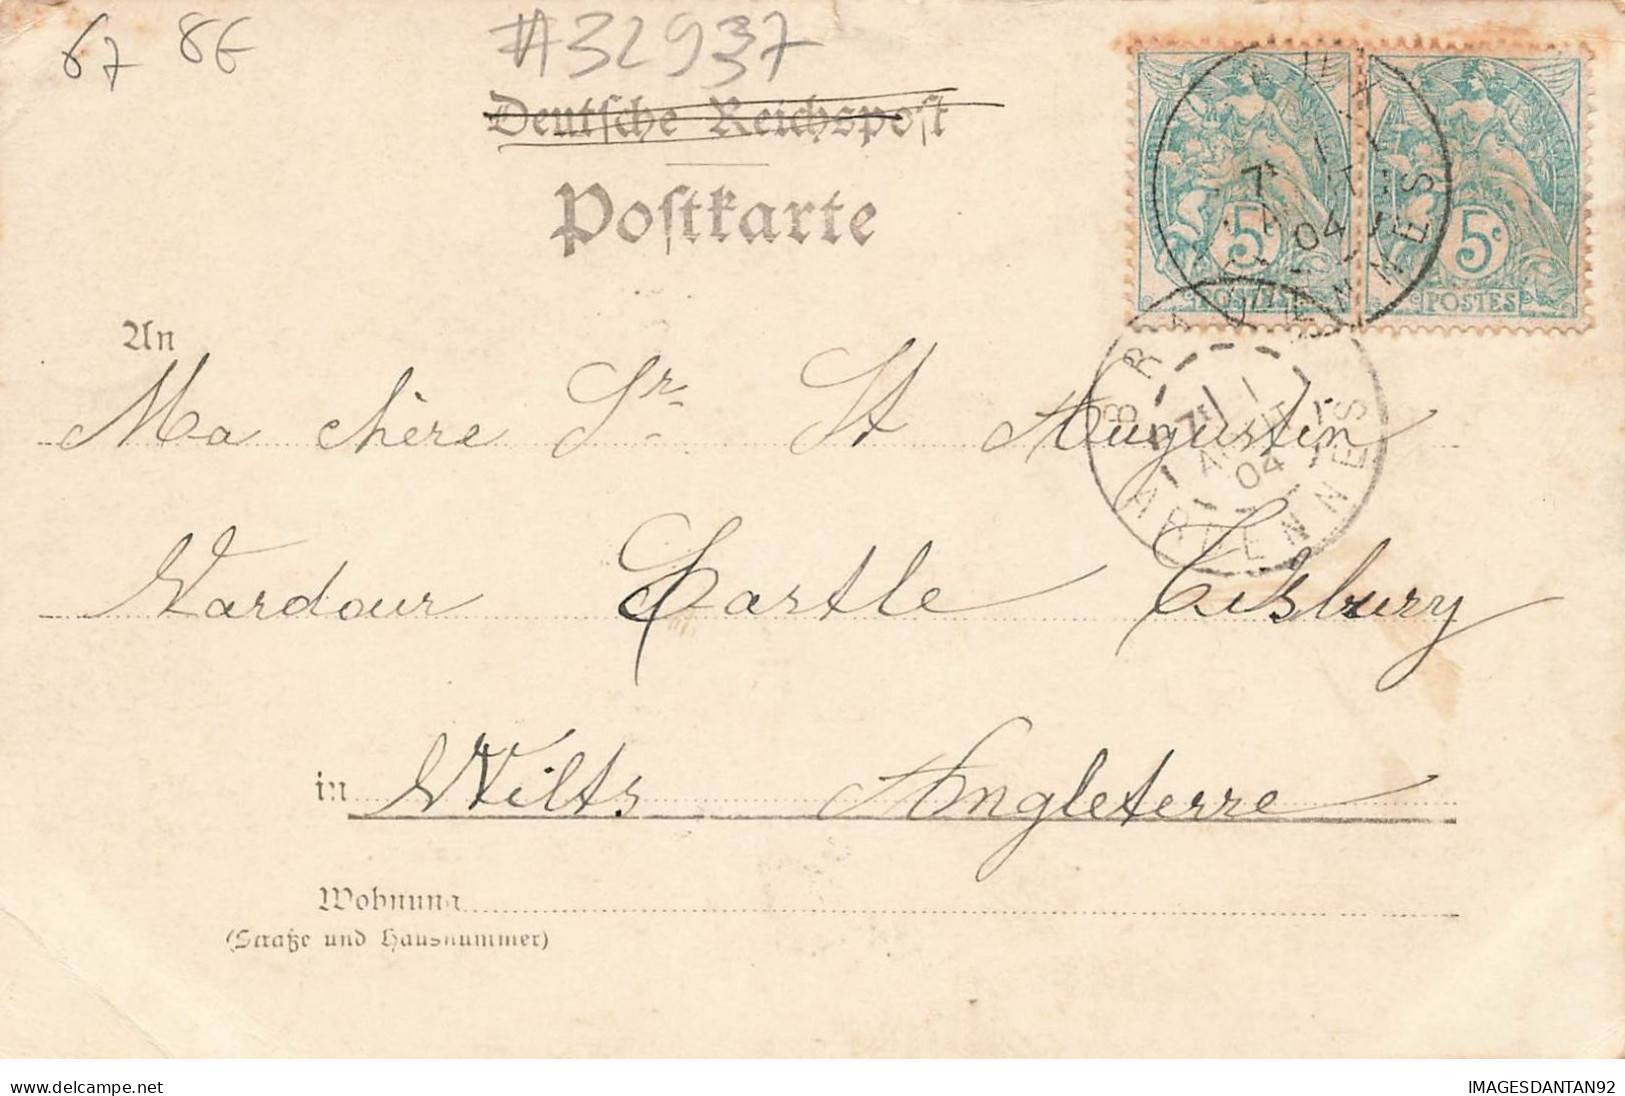 67 8E
#32937
Deutsche Reichspost
Postkarte
5c 5c
POSTES POSTES
7E 1
AOUT
04
ARDENNES
An
Ma chère Sr St Augustin
Wardour Castle Tisbury
in Wilts Angleterre
Wohnung
(Straße und Hausnummer)
www.delcampe.net IMAGESDANTAN92